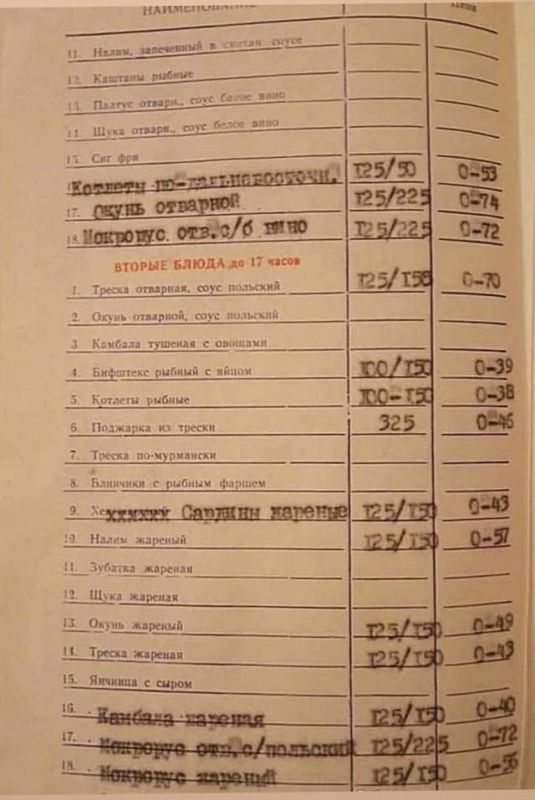 НАИМЕНОВАНИЕ
11. Налим, запеченный в сметан. соусе
12. Каштаны рыбные
13. Палтус отварн., соус белое вино
14. Щука отварн., соус белое вино
15. Сиг фри
Котлеты по-дальневосточн. 125/50 0-53
17. Окунь отварной 125/225 0-74
18. Мокрорус отв. с/б вино 125/225 0-72
ВТОРЫЕ БЛЮДА до 17 часов
1. Треска отварная, соус польский 125/150 0-70
2. Окунь отварной, соус польский
3. Камбала тушеная с овощами
4. Бифштекс рыбный с яйцом 100/150 0-39
5. Котлеты рыбные 100-150 0-38
6. Поджарка из трески 325 0-46
7. Треска по-мурмански
8. Блинчики с рыбным фаршем
9. Сардины жареные 125/150 0-43
10. Налим жареный 125/150 0-57
11. Зубатка жареная
12. Щука жареная
13. Окунь жареный 125/150 0-49
14. Треска жареная 125/150 0-43
15. Яичница с сыром
16. Камбала жареная 125/150 0-40
17. Мокрорус отв. с/польский 125/225 0-72
18. Мокрорус жареный 125/150 0-56